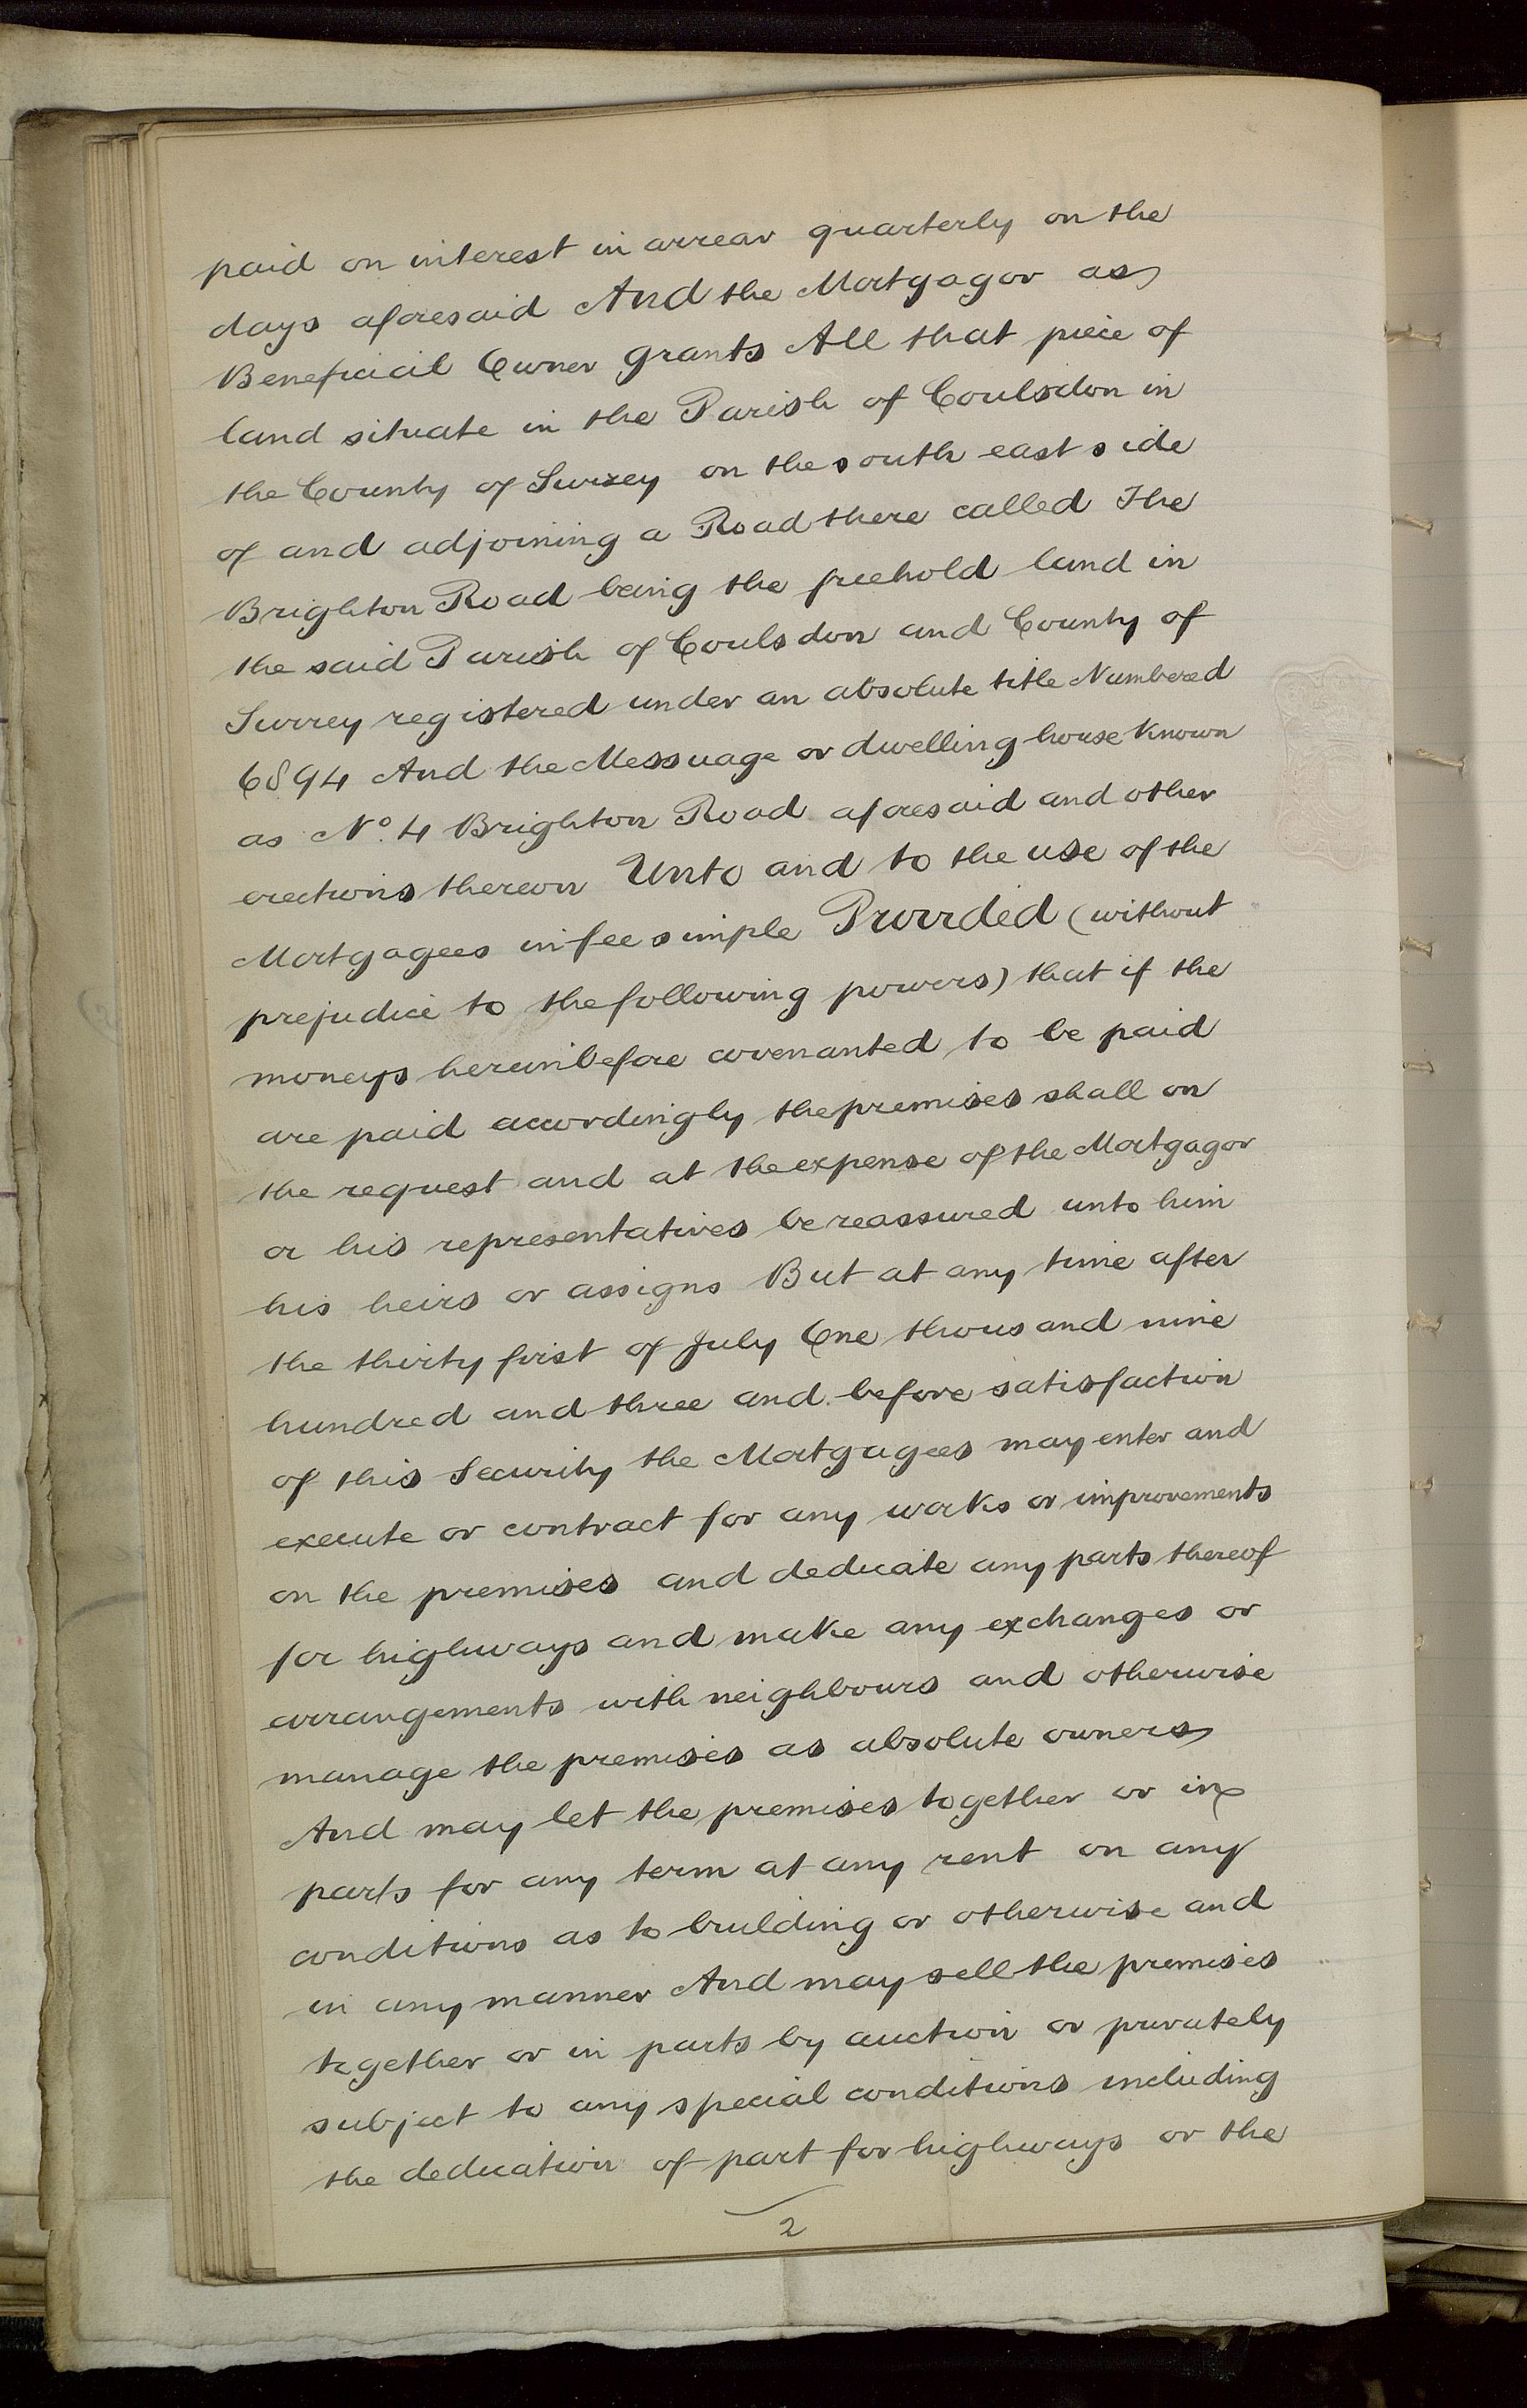 paid on interest in arrear quarterly on the
days aforesaid And the Mortgagor as
Beneficial Owner Grants All that piece of
land situate in the Parish of Coulsdon in
the County of Surrey on the south east side
of and adjoining a Road there called The
Brighton Road being the freehold land in
the said Parish of Coulsdon and County of
Surrey registered under an absolute title Numbered
6894 And the Messuage or dwelling house known
as No. 4 Brighton Road aforesaid and other
erections thereon Unto and to the use of the
Mortgagees in fee simple Provided (without
prejudice to the following powers) that if the
moneys hereinbefore covenanted to be paid
are paid accordingly the premises shall on
the request and at the expense of the Mortgagor
or his representatives be reassured unto him
his heirs or assigns But at any time after
the thirty first of July One thousand nine
hundred and three and before satisfaction
of this Security the Mortgagees may enter and
execute or contract for any works or improvements
on the premises and dedicate any parts thereof
for highways and make any exchanges or
arrangements with neighbours and otherwise
manage the premises as absolute owners
And may let the premises together or in
parts for any term at any rent on any
conditions as to building or otherwise and
in any manner And may sell the premises
together or in parts by auction or privately
subject to any special conditions including
the dedication of part for highways or the
2